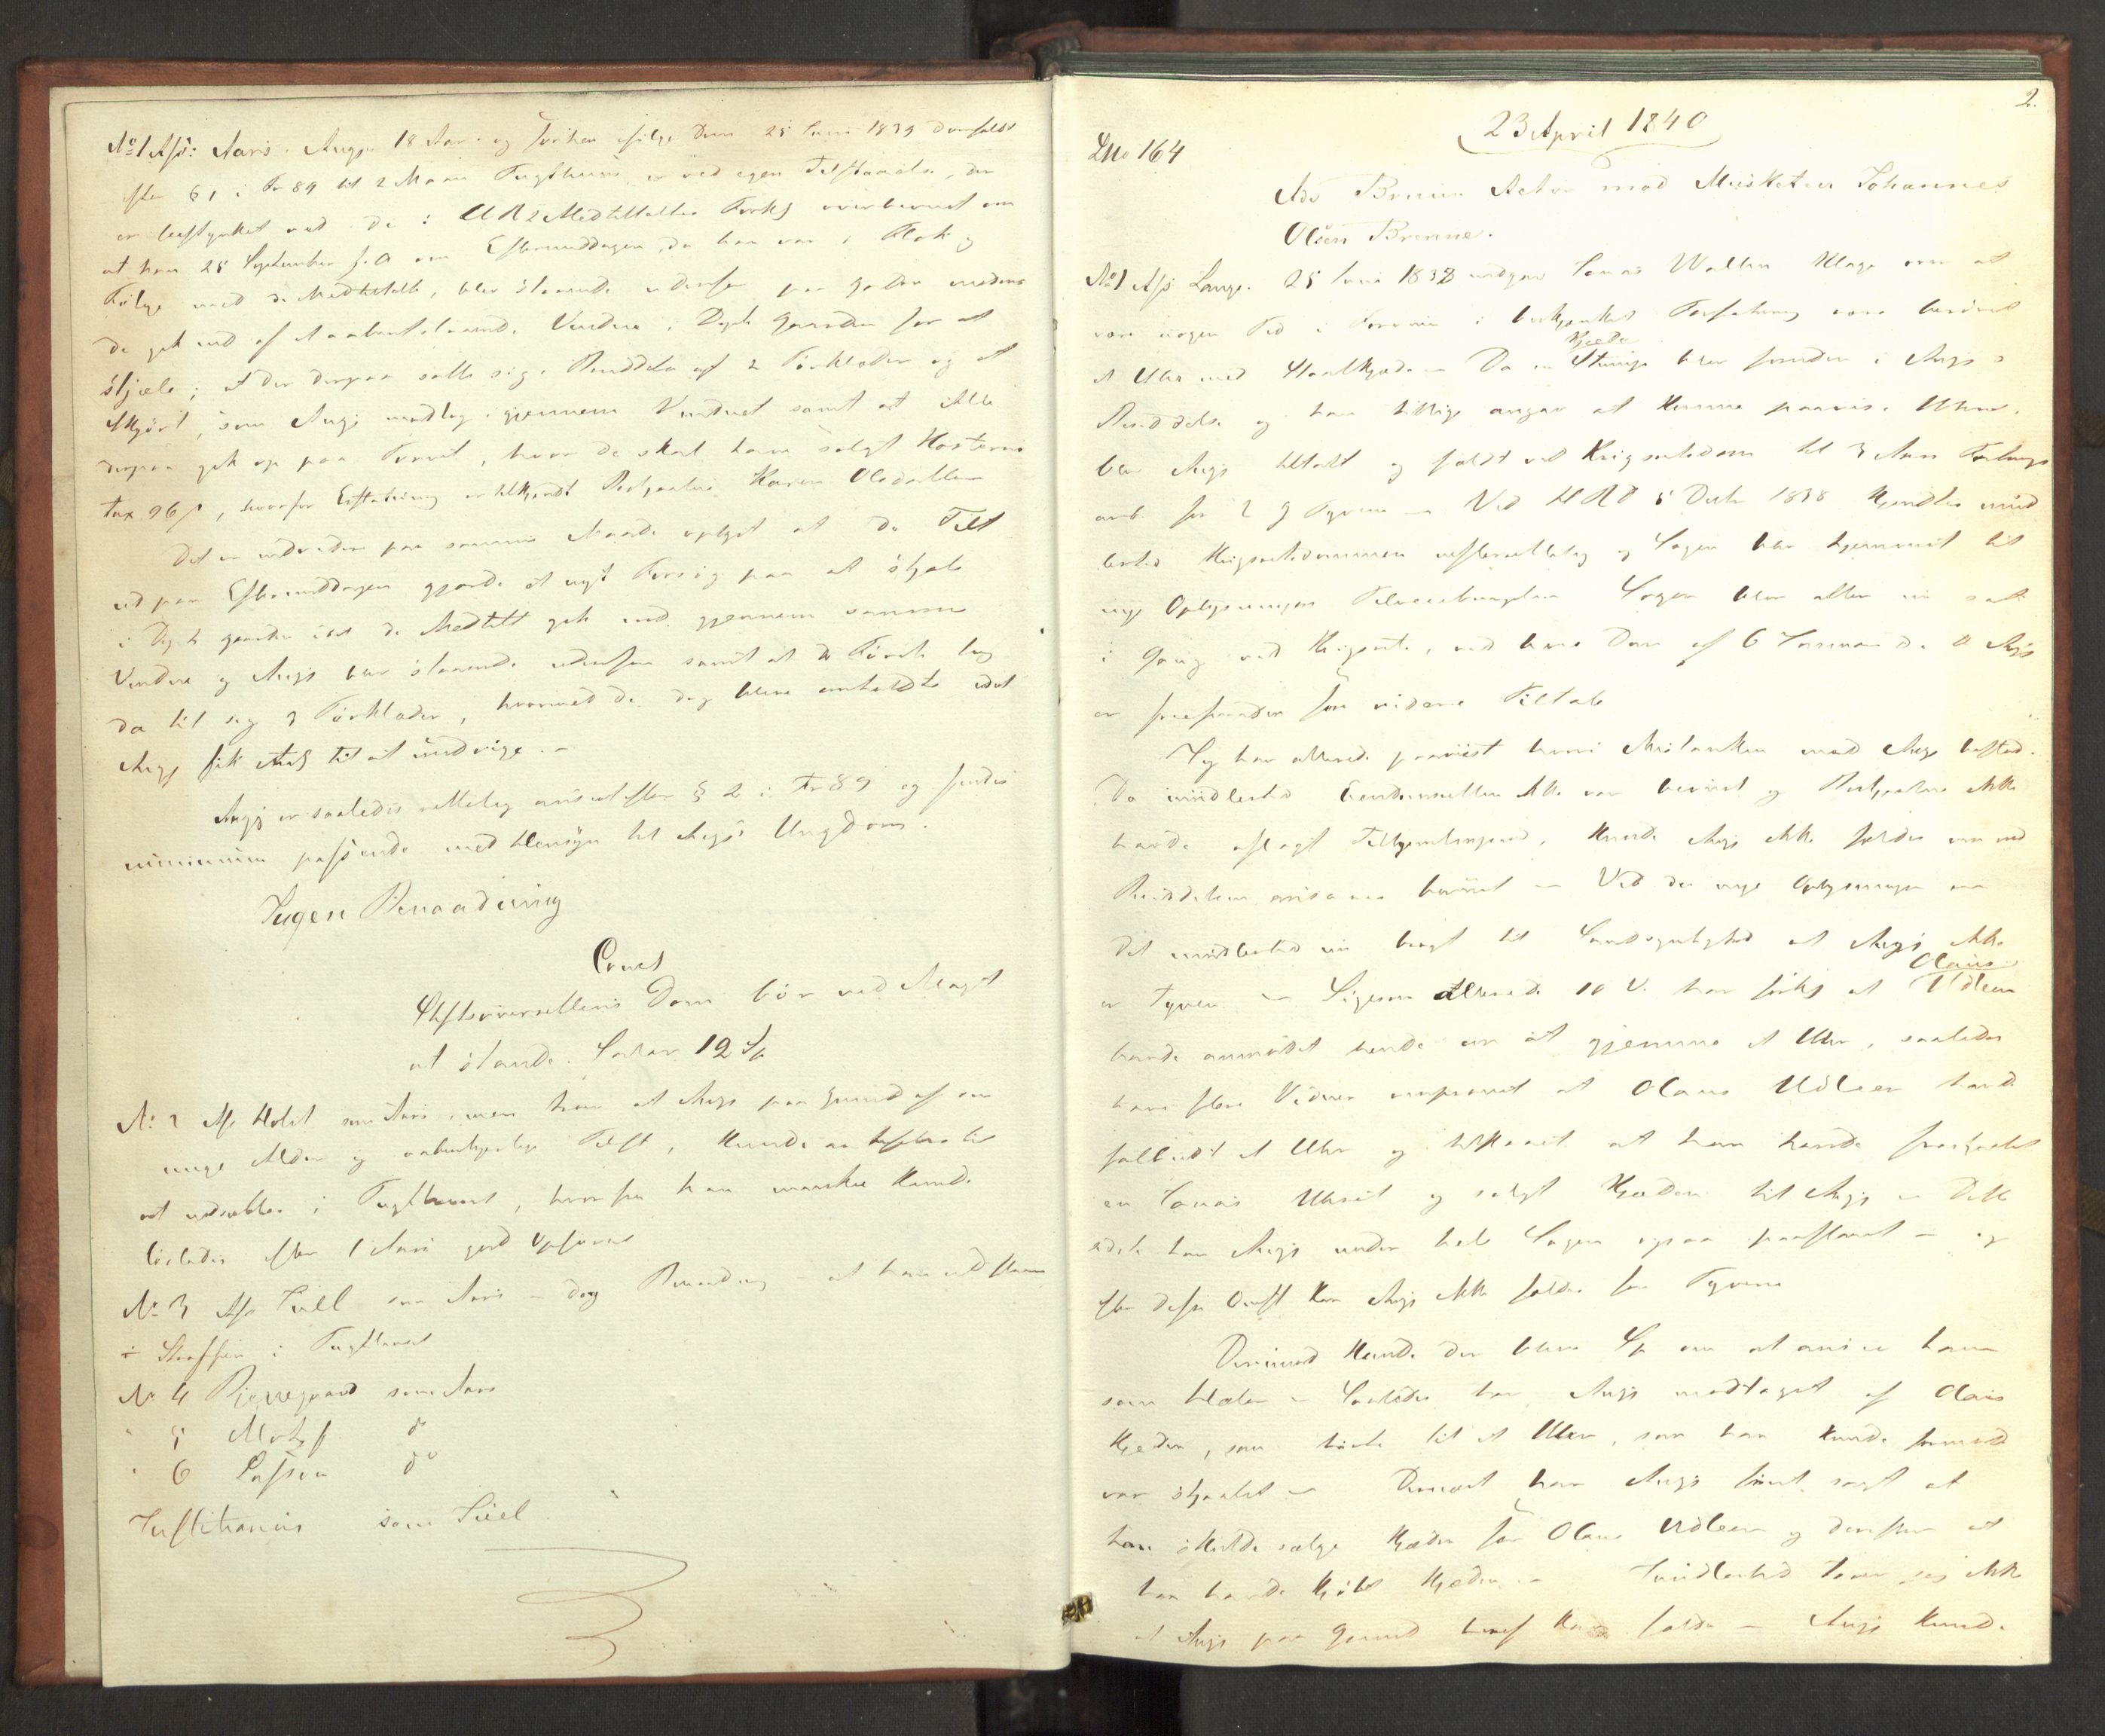 No 1 Ass: Aars. Angj. 18 Aar og forhen ifølge Dom 25 Juni 1839 domfældt
efter § 1 i Fr 89 til 2 Maan Tugthuus er ved egen Tilstaaelse, der
er bestyrket ved de i URs Medtiltaltes Forkl overbeviist om
at han 28 September f. A om Eftermiddagen, da han var i Flok og
Følge med de Medtiltalte, blev staaende udenfor paa Gaden medens
de gik ind af et aabentstaaende Vindue i Gaarden for at
stjæle; at der derpaa satte sig i Besiddelse af 2 Tørklæder og et
Skjørt, som Angj modtog igjennem Vinduet samt at alle
derpaa gik op paa Torvet, hvor de skal have solgt Kosterne
tax 96 s, hvorfor Erstatning er tilkjendt Bestjaalne Karen
Det er endvidere paa samme Maade oplyst at de Tilt
ud paa Eftermiddagen gjorde et nyt Forsøg paa at stjæle
i gaarden idet de Medtilt gik ind gjennem samme
Vindue og Angj blev staaende udenfor samt at de Første tog
da til sig 3 Tørklæder, hvormed de dog bleve anholdte idet
Angj fik til at undvige. –
Angj er saaledes rettelig anseet efter § 2 i Fr 89 og findes
minimum passende med Hensyn til Angjs Ungdom.
Ingen Benaadning
Concl
Stiftsoverrettens Dom bør ved Magt
at stande. Salar 12 Sp
No 2 Ass Holst som Aars, men tror at Angj paa Grund af sin
unge Alder og aabenhjertige Tilst, kunde
at indsættes i Tugthuset, hvorfra han maaskee kunde
løslades efter 1 Aars god Opførsel
No 3 Ass Siell som Aars – dog Benaadning – at han udstaaer
Straffen i Tugthuset
No 4 Bjerregaard som Aars
" 5 Motzf do
" 6 Lasson do
Justitiarius som Siel
2.
23 April 1840
LNo 164
Adv Bruun Actor mod Musketeer Johannes
Olsen Brenne.
No 1 Ass Lange. 25 Juni 1838 indgav Jonas Wallen Klage over at
være nogen Tid i Forveien i beskjenket Forfatning være berøvet
et Uhr med Staalkjæde – Da en Kjæde blev funden i Angjs
Besiddelse og han tillige angav at kunne paavise Uhret
blev Angj tiltalt og fældt ved Krigsretsdom til 3 Aars Fæstnings
arb. for 2 G Tyverie – Ved HRD 5 Decbr 1838 kjendtes imid
lertid Krigsretsdommen uefterrettelig og Sagen blev hjemviist til
nye Oplysningers Tilveiebringelse Sagen blev atter nu sat
i Gang ved Krigsret, ved hvis Dom af 6 Januar d. A Angj
er frifunden for videre Tiltale
Jeg har allerede paaviist hvori Mistanken mod Angj bestod.
Da imidlertid Eiendomsretten ikke var beviist og Bestjaalne ikke
havde aflagt Tilhjemlingseed, kunde Angj ikke fældes om end
Besiddelsen ansaaes beviist – Ved de nye Oplysninger er
det imidlertid nu bragt til Sandsynlighed at Angj ikke
er Tyven – Ligesom allerede 10 V. har forkl at Olaus Udleen
havde anmodet hende om at gjemme et Uhr, saaledes
have flere Vidner at Olaus Udleen havde
falbudt et Uhr og tilstaaet at han havde frastjaalet
en Jonas Uhret og solgt Kjæden til Angj – Dette
sidste har Angj under hele Sagen ogsaa paastaaet – og
efter disse Omst kan Angj ikke fældes for Tyverie
Derimod kunde der blive Sp om at ansee ham
som Hæler – Saaledes har Angj modtaget af Olaus
Kjæden, som hørte til et Uhr, som han kunde formode
var stjaalet – Dernæst har Angj først sagt at
han skulde sælge Kjæden for Olaus Udleen og derefter at
han havde kjøbt Kjæden – Imidlertid troer jeg ikke
at Angj paa Grund heraf kan fældes – Angj kunde